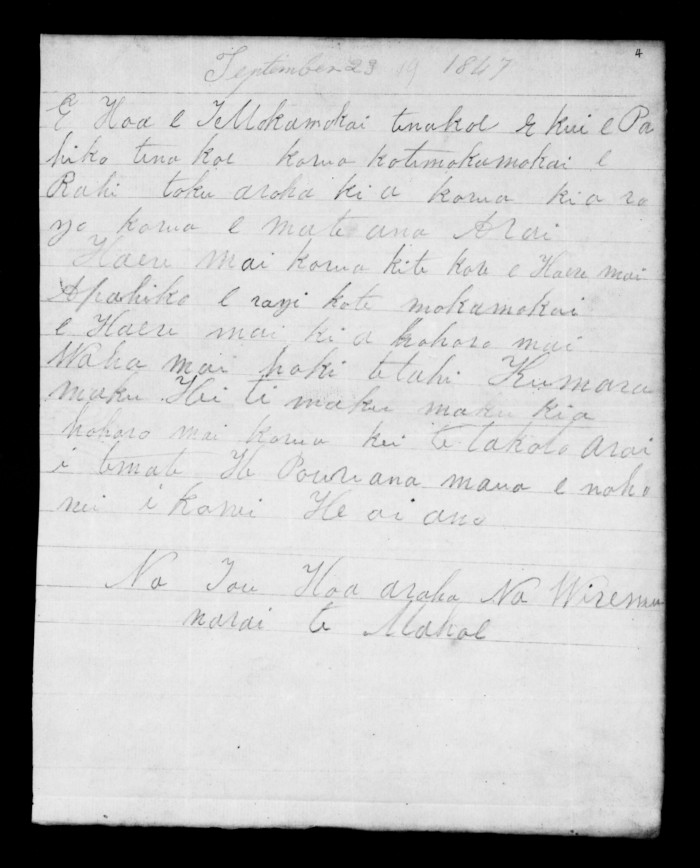 4
September 23 19 1847
E Hoa e TeMokamokai tenakoe E kui e Pa
hiko tena koe korua kotemokamokai e
Rahi toku aroha ki a korua kia ro
ngo korua e mate ana Arai
Haere mai korua kite kore e Haere mai
Apahiko e rangi kote mokamokai
e Haere mai ki a hohoro mai
Waha mai hoki tetahi Kumara
maku Hei ti maku maku kia
hohoro mai korua kei te takoto Arai
i temate He Pouri ana maua e noho
nei i konei He oi ano
Na Tou Hoa aroha Na Wiremu
narai te Mahoe